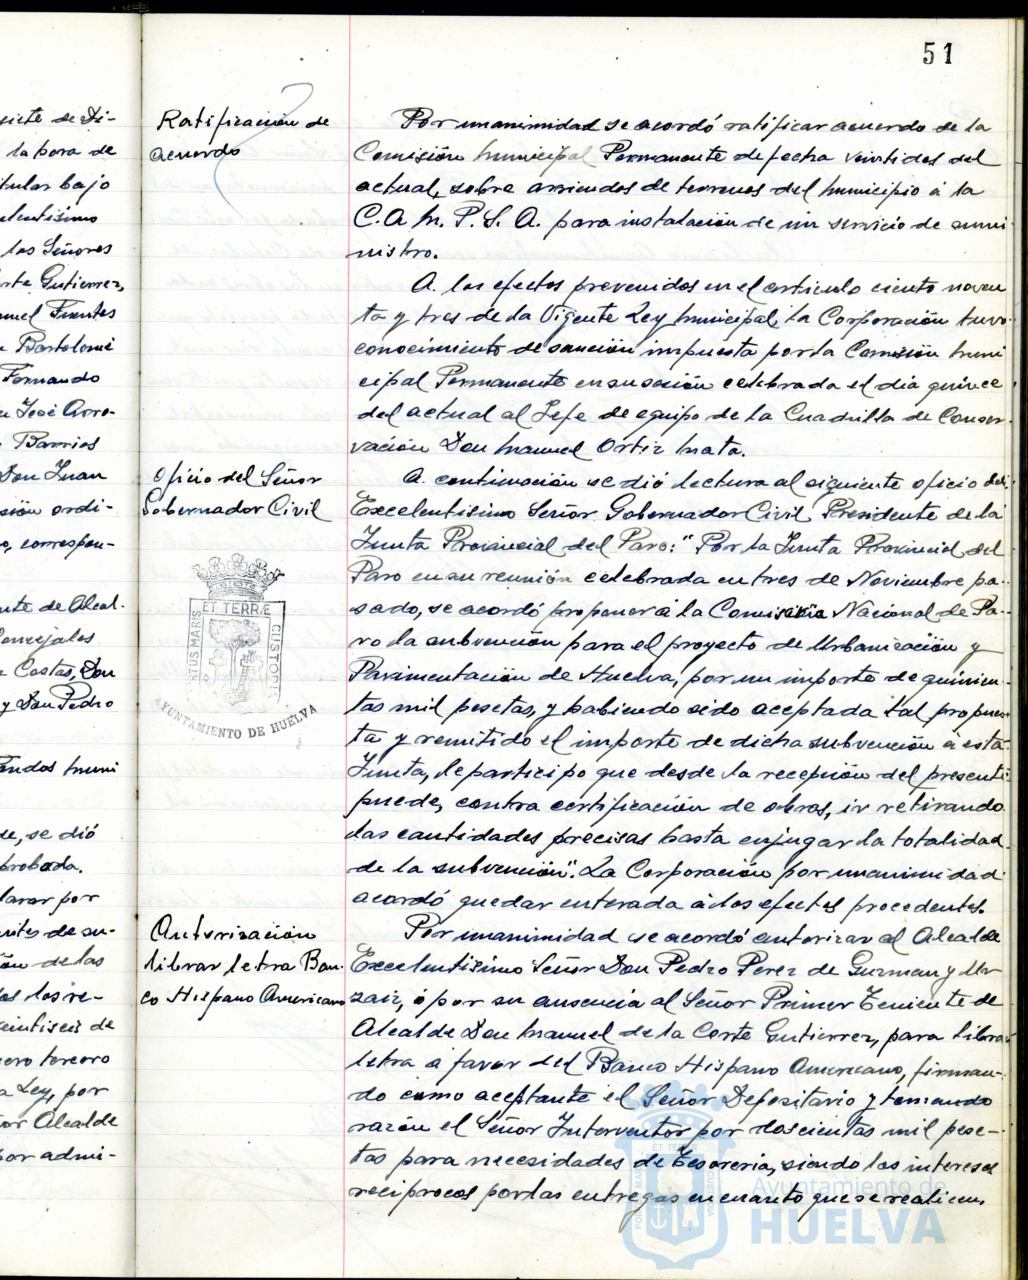 51
siete de Di-
la hora de
itular bajo
elentisimo
los Señores
orte Gutierrez,
nuel Fuentes
Bartolomé
Fernando
José Arro-
Barrios
Don Juan
sión ordi-
o, correspon-
nte de Alcal-
Concejales
Costas, Don
y Don Pedro
andos muni
de, se dió
probada.
larar por
ón de las
los re-
veintiseis de
ero tercero
a Ley, por
or Alcalde
por admi-
Ratificación de
acuerdo
Por unanimidad se acordó ratificar acuerdo de la
Comisión Municipal Permanente de fecha veintidos del
actual, sobre arriendos de terrenos del Municipio á la
C.A.M.P.S.A. para instalación de un servicio de sumi-
nistro.
A los efectos prevenidos en el articulo ciento noven
ta y tres de la Vigente Ley Municipal, la Corporación tuvo
conocimiento de sanción impuesta por la Comisión Muni
cipal Permanente en su sesión celebrada el día quince
del actual al Jefe de equipo de la Cuadrilla de Conser-
vación Don Manuel Ortiz Mata.
Oficio del Señor
Gobernador Civil
A continuación se dió lectura al siguiente oficio del
Excelentisimo Señor Gobernador Civil Presidente de la
Junta Provincial del Paro: "Por la Junta Provincial del
Paro en su reunión celebrada en tres de Noviembre pa-
sado, se acordó proponer á la Comisaria Nacional de Pa-
ro la subvención para el proyecto de Urbanización y
Pavimentación de Huelva, por un importe de quinien-
tas mil pesetas, y habiendo sido aceptada tal propues-
ta y remitido el importe de dicha subvención á esta
Junta, le participo que desde la recepción del presente
puede, contra certificación de obras, ir retirando
las cantidades precisas hasta enjugar la totalidad
de la subvención". La Corporación por unanimidad
acordó quedar enterada á los efectos procedentes.
ET TERRÆ
CUSTODIA
PORTUS MARIS
AYUNTAMIENTO DE HUELVA
Autorización
librar letra Ban-
co Hispano Americano
Por unanimidad se acordó autorizar al Alcalde
Excelentisimo Señor Don Pedro Perez de Guzman y Ur
zaiz, ó por su ausencia al Señor Primer Teniente de
Alcalde Don Manuel de la Corte Gutierrez, para librar
letra a favor del Banco Hispano Americano, firman-
do como aceptante el Señor Depositario y tomando
razón el Señor Interventor por doscientas mil pese-
tas para necesidades de Tesoreria, siendo los intereses
reciprocos por las entregas en cuanto que se realicen,
Ayuntamiento de
HUELVA